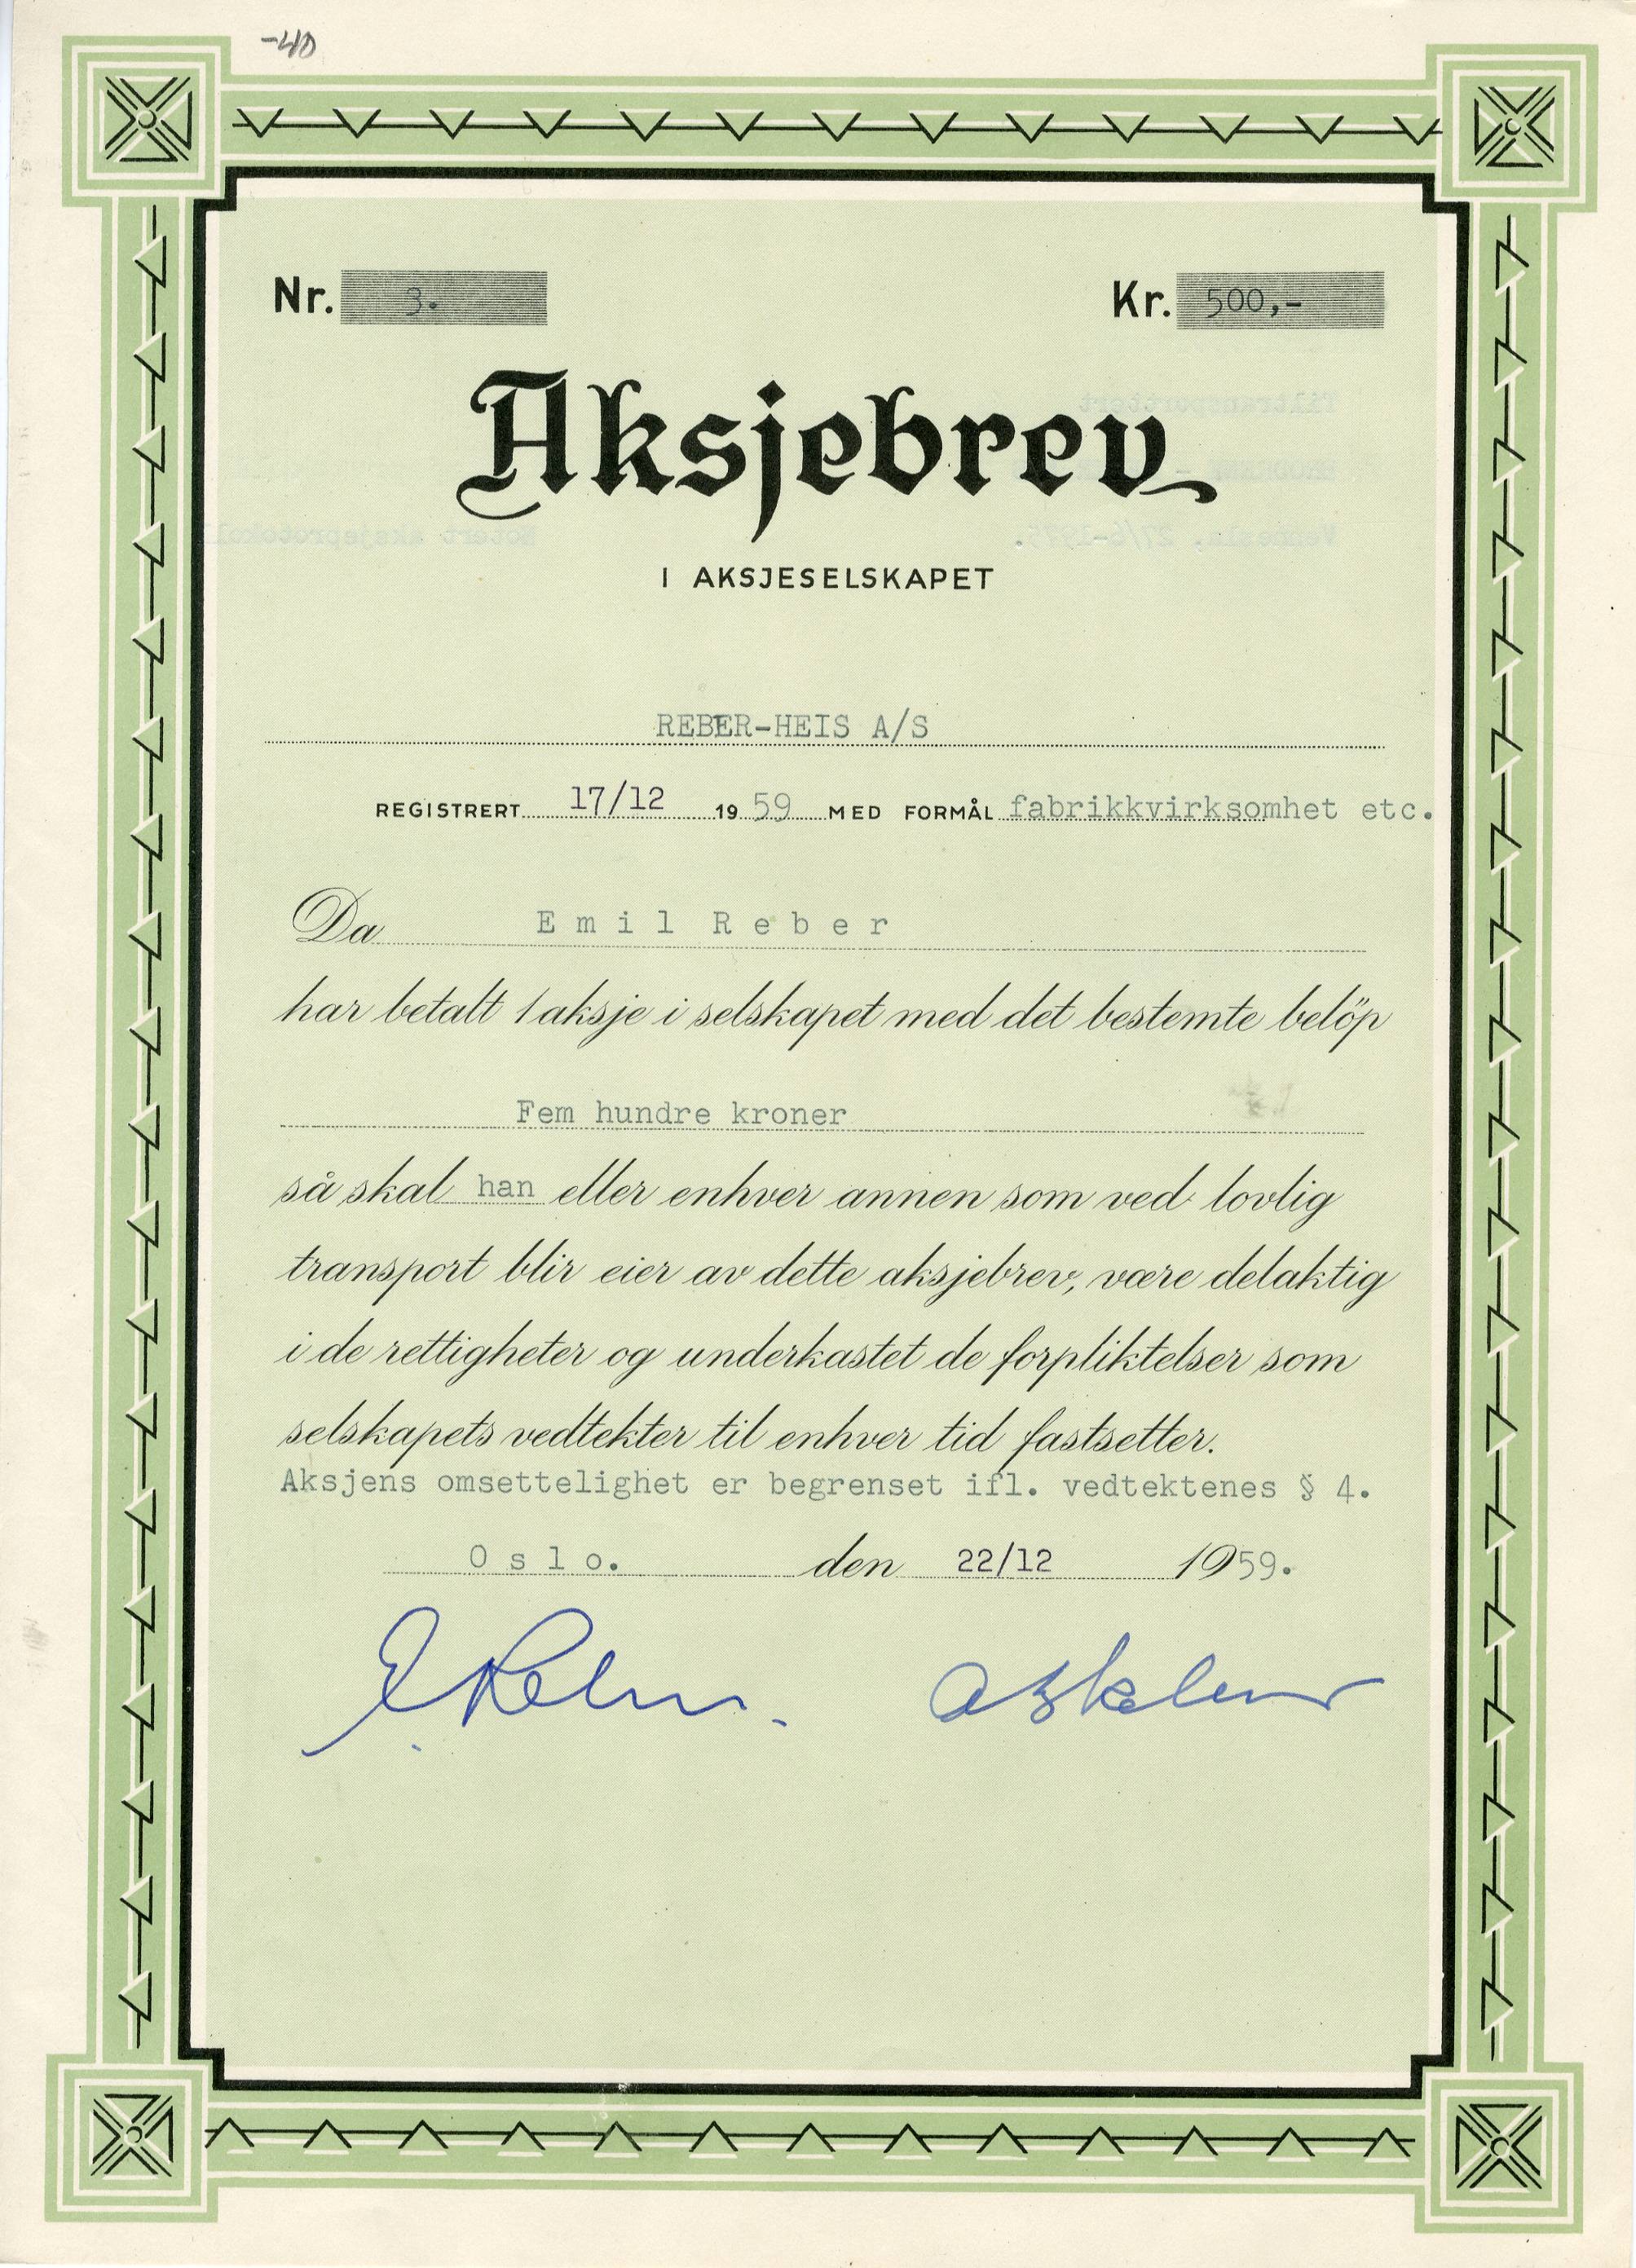 -40
Nr. 3. Kr. 500,-
Aksjebrev
I AKSJESELSKAPET
REBER-HEIS A/S
REGISTRERT 17/12 1959 MED FORMÅL fabrikkvirksomhet etc.
Da Emil Reber
har betalt 1 aksje i selskapet med det bestemte belöp
Fem hundre kroner
så skal han eller enhver annen som ved lovlig
transport blir eier av dette aksjebrev, være delaktig
i de rettigheter og underkastet de forpliktelser som
selskapets vedtekter til enhver tid fastsetter.
Aksjens omsettelighet er begrenset ifl. vedtektenes § 4.
Oslo. den 22/12 1959.